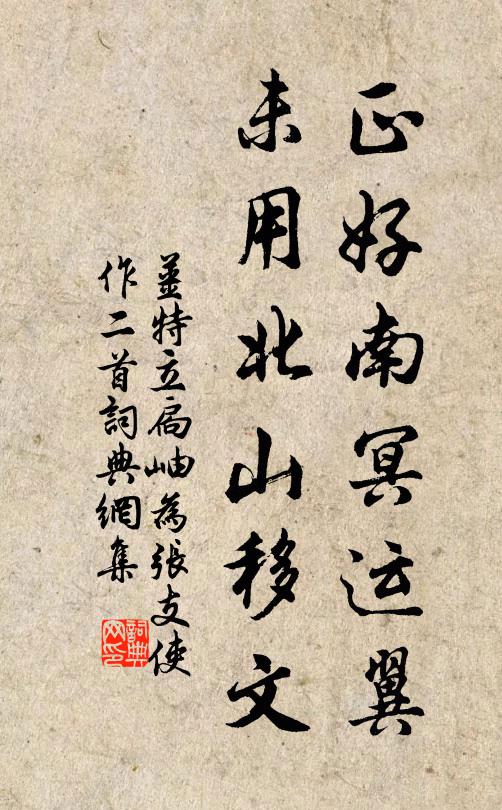 正好南冥运翼
未用北山移文
姜特立扁岫為張支使
作二首詞典網集
詞典网印